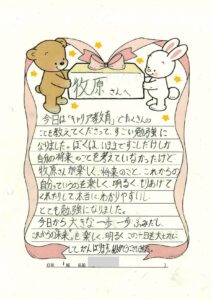 牧原さんへ
今日は「キャリア教育」でたくさんの
ことを教えてくださって、すごい勉強に
なりました。ぼくは、いままですこしだけしか
自分の将来のことを考えていなかったけど
牧原さんが楽しく、将来のこと、これからの
自分っていうのを楽しく、明るく、もりあげて
くれたりして本当にわかりやすいし
とても勉強になりました。
今日から大きな一歩一歩ふみだし、
これからの「未来」を楽しく、明るく、この十日を大切に
して